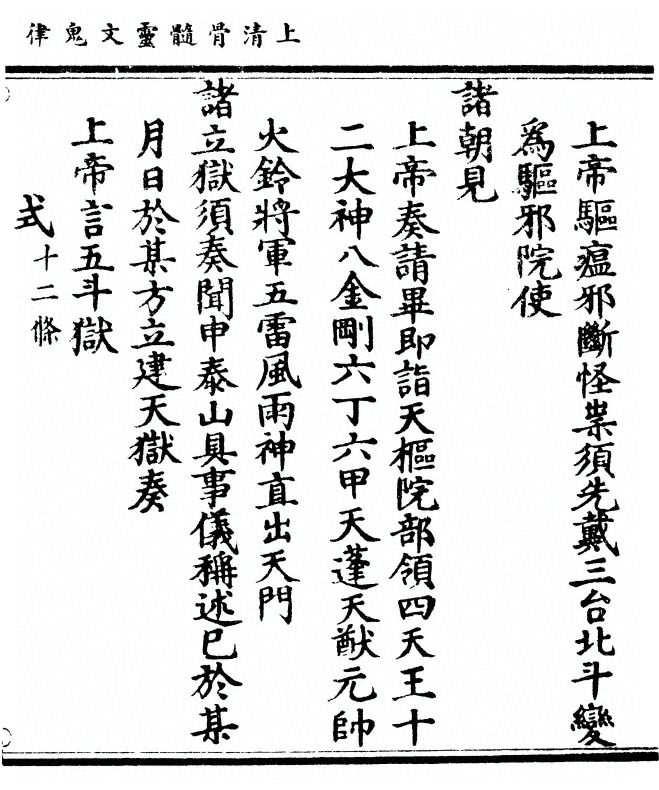 上清骨髓靈文鬼律
上帝驅瘟邪斷怪祟須先戴三台北斗變
為驅邪院使
諸朝見
上帝奏請畢即詣天樞院部領四天王十
二大神八金剛六丁六甲天蓬天猷元帥
火鈴將軍五雷風雨神直出天門
諸立獄須奏聞申泰山具事儀稱述已於某
月日於某方立建天獄奏
上帝言五斗獄
式十二條